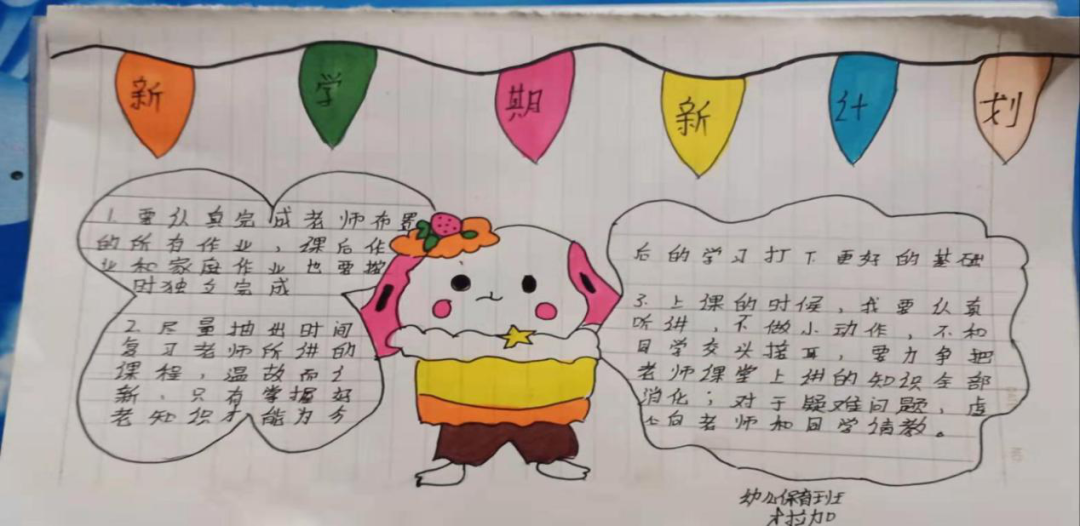 新学期新计划
1. 要认真完成老师布置
的所有作业、课后作
业和家庭作业也要按
时独立完成
2. 尽量抽出时间
复习老师所讲的
课程，温故而知
新，只有掌握好
老知识才能为今
后的学习打下更好的基础
3. 上课的时候，我要认真
听讲，不做小动作，不和
同学交头接耳，要力争把
老师课堂上讲的知识全部
消化；对于疑难问题，虚
心向老师和同学请教。
幼儿保育班
才拉加